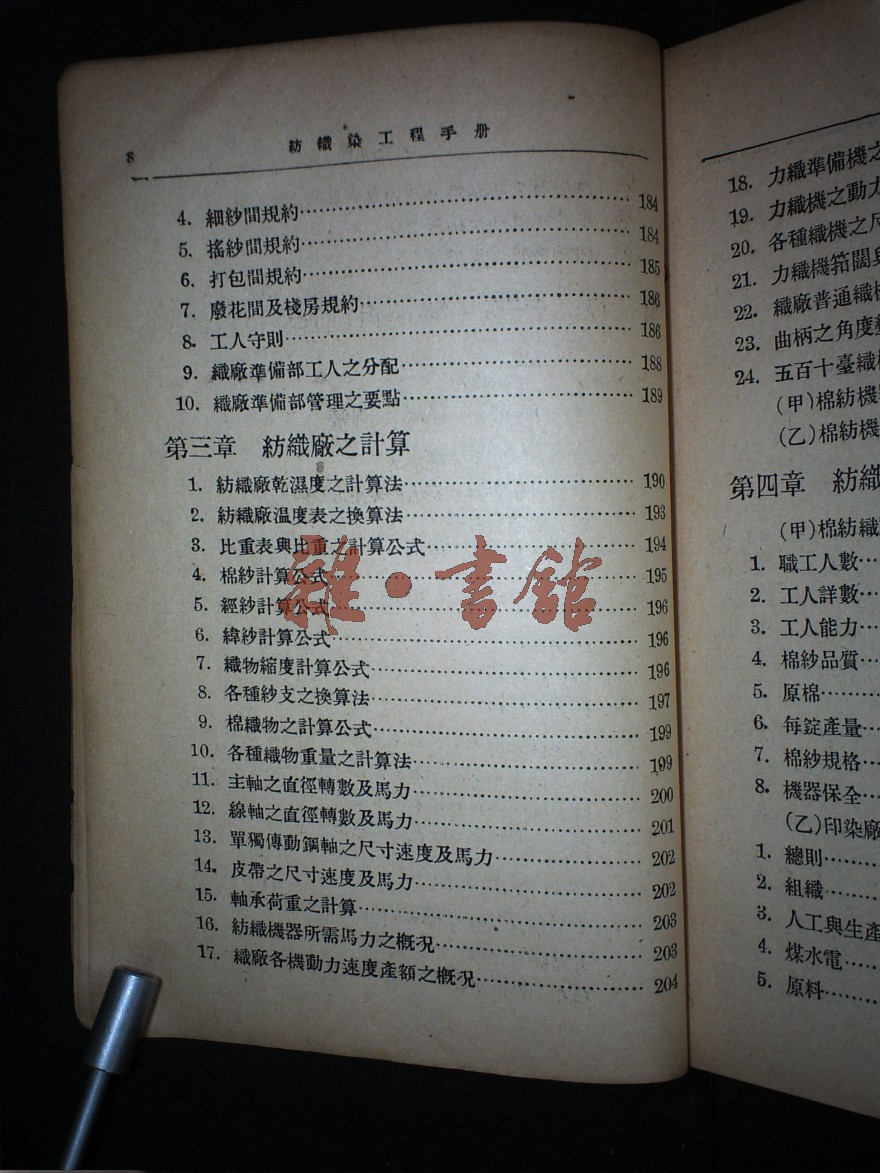 8
紡織染工程手册
4. 細紗間規約 184
5. 搖紗間規約 184
6. 打包間規約 185
7. 廢花間及棧房規約 186
8. 工人守則 186
9. 織廠準備部工人之分配 188
10. 織廠準備部管理之要點 189
第三章 紡織廠之計算
1. 紡織廠乾濕度之計算法 190
2. 紡織廠温度表之換算法 193
3. 比重表與比重之計算公式 194
4. 棉紗計算公式 195
5. 經紗計算公式 196
6. 緯紗計算公式 196
7. 織物縮度計算公式 196
8. 各種紗支之換算法 197
9. 棉織物之計算公式 199
10. 各種織物重量之計算法 199
11. 主軸之直徑轉數及馬力 200
12. 線軸之直徑轉數及馬力 201
13. 單獨傳動鋼軸之尺寸速度及馬力 202
14. 皮帶之尺寸速度及馬力 202
15. 軸承荷重之計算 203
16. 紡織機器所需馬力之概况 203
17. 織廠各機動力速度產額之概况 204
雜·書館
18. 力織準備機之
19. 力織機之動力
20. 各種織機之尺
21. 力織機筘闊與
22. 織廠普通織機
23. 曲柄之角度
24. 五百十臺織機
(甲)棉紡機
(乙)棉紡機
第四章 紡織
(甲)棉紡織
1. 職工人數
2. 工人詳數
3. 工人能力
4. 棉紗品質
5. 原棉
6. 每錠產量
7. 棉紗規格
8. 機器保全
(乙)印染廠
1. 總則
2. 組織
3. 人工與生產
4. 煤水電
5. 原料